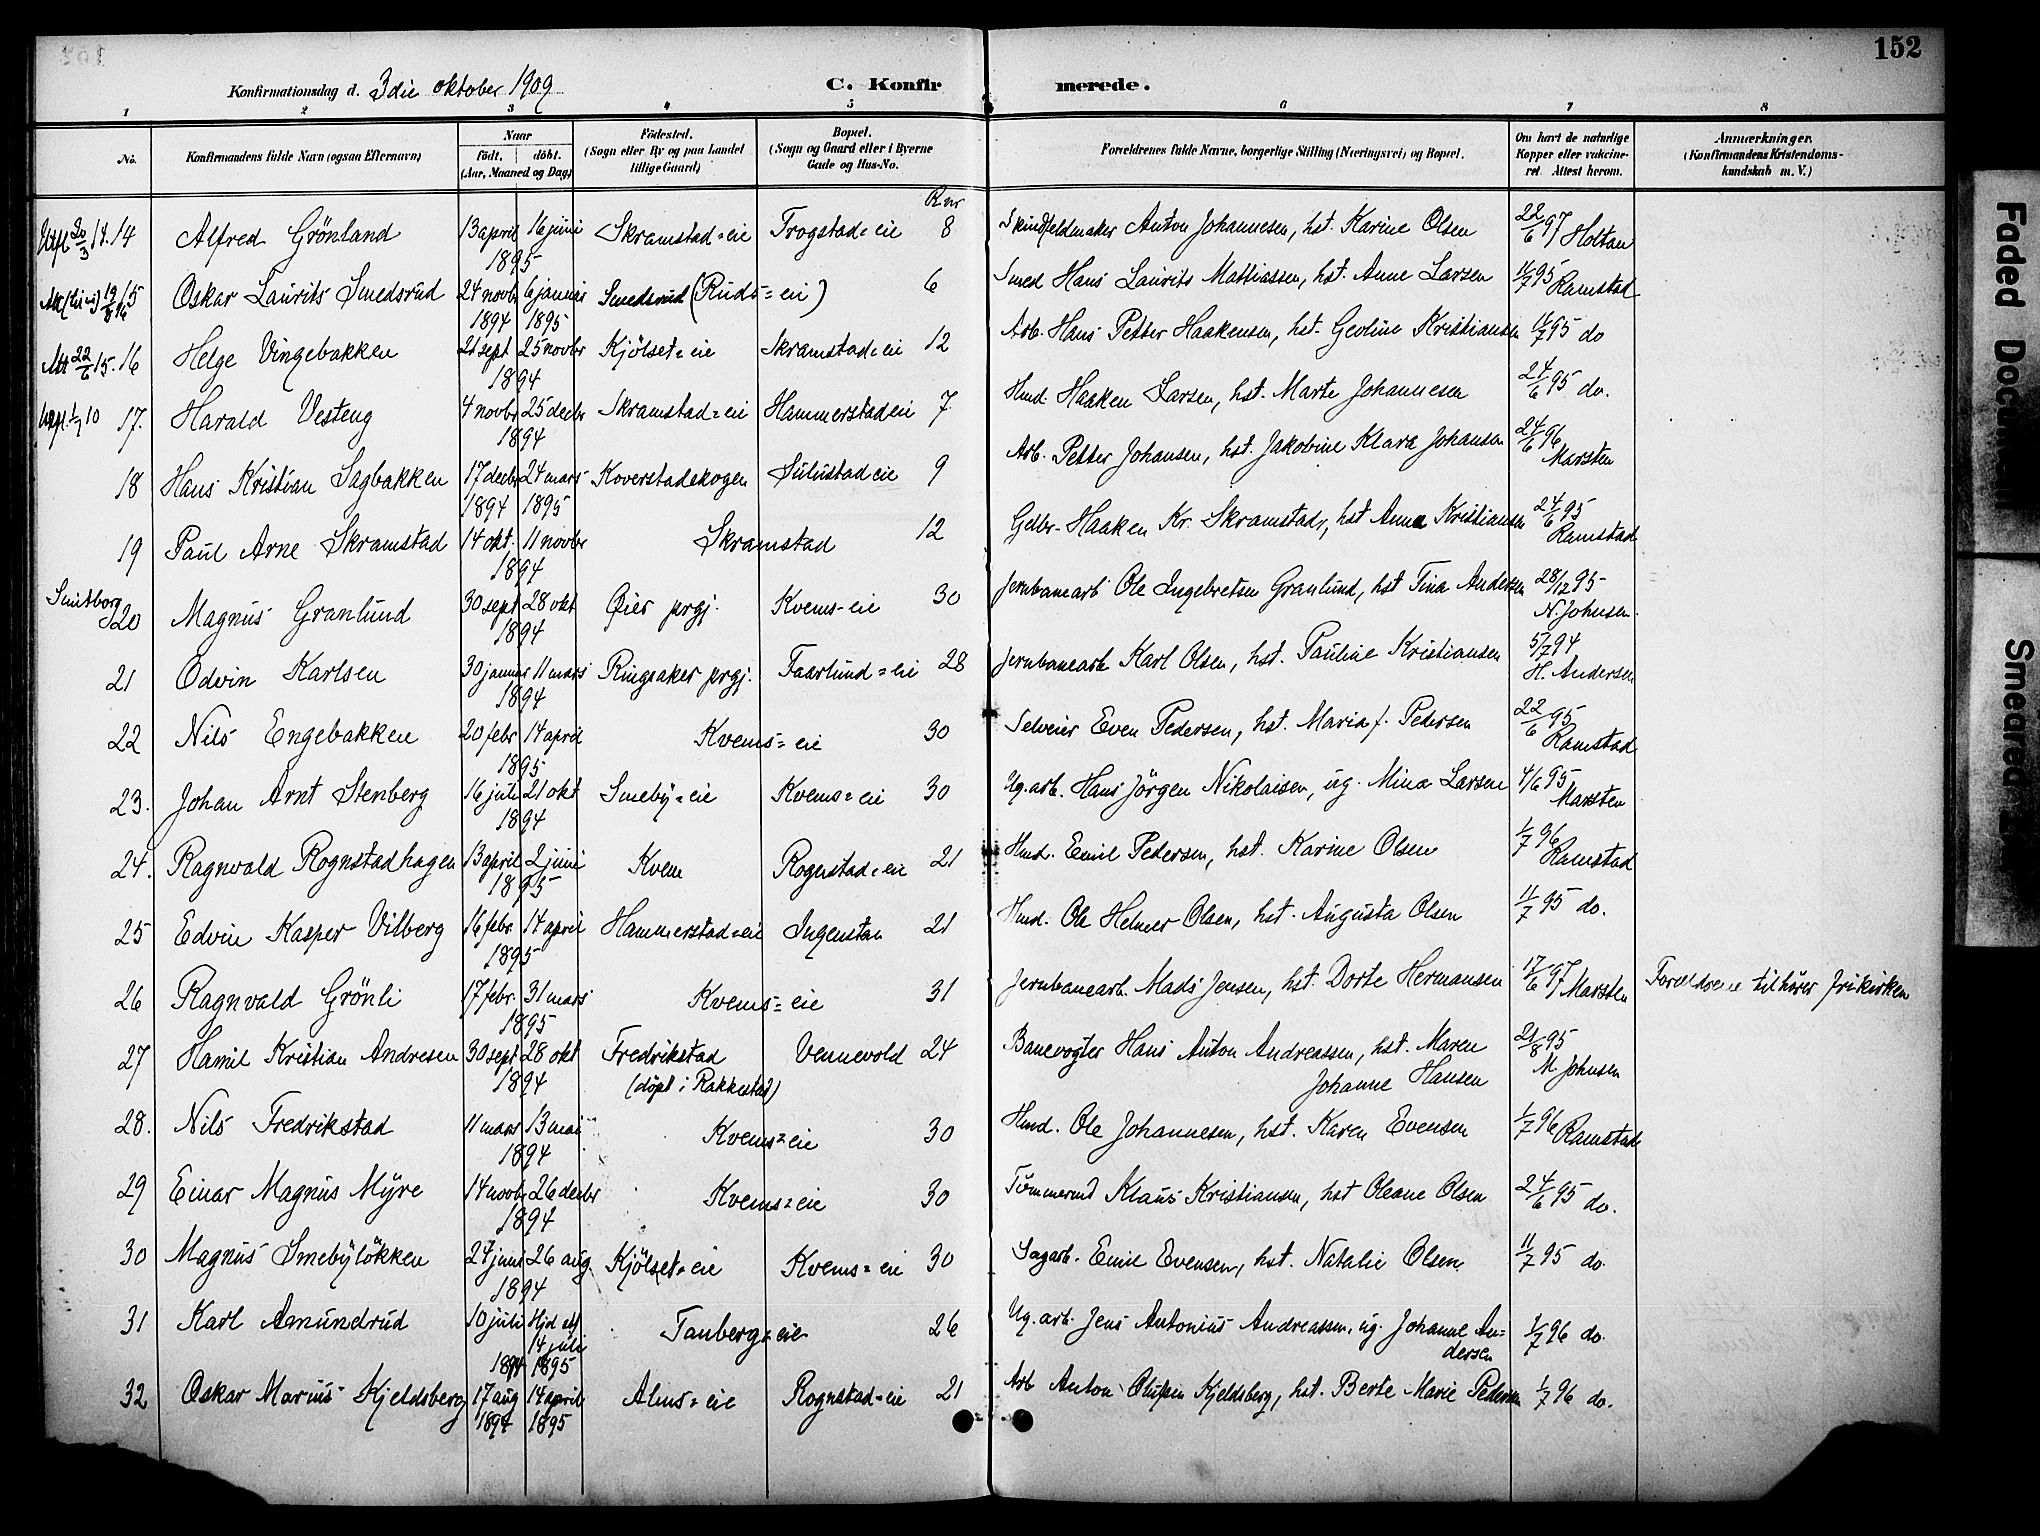 152
Konfirmationsdag d. 3die oktober 1909
C. Konfirmerede.
1 2 3 4 5 6 7 8
No.
Konfirmandens fulde Navn (ogsaa Efternavn)
Naar
födt. döbt.
(Aar, Maaned og Dag)
Födested.
(Sogn eller By og paa Landet
tillige Gaard)
Bopæl.
(Sogn og Gaard eller i Byerne
Gade og Hus-No.
Forældrenes fulde Navne, borgerlige Stilling (Næringsvei) og Bopæl.
Om havt de naturlige
Kopper eller vakcine-
ret. Attest herom.
Anmærkninger.
(Konfirmandens Kristendoms-
kundskab m. V.)
Rnr
20/3 14. 14 Alfred Grönland 13 april 16 juni 1895 Skramstad=eie Trogstad=eie 8 Skindfeldmaker Anton Johannesen, hst. Karine Olsen 22/6 97 Holtan
15 Oskar Laurits Smedsrud 24 novbr 1894 6 januar 1895 Smedsrud (Ruds=eie) 6 Smed Hans Laurits Mathiassen, hst. Anne Larsen 11/7 95 Ramstad
Att 22/6 15. 16 Helge Vingebakken 21 sept 25 novbr 1894 Kjölset=eie Skramstad=eie 12 Arb. Hans Petter Haakensen, hst. Geoline Kristiansen 11/7 95 do
1/7 10 17. Harald Vesteng 4 novbr 25 decbr 1894 Skramstad=eie Hammerstad eie 7 Hmd. Haaken Larsen, hst. Marte Johannesen 24/6 95 do.
18 Hans Kristian Sagbakken 17 decbr 1894 24 mars 1895 Koverstadskogen Sulustad eie 9 Arb. Petter Johansen, hst. Jakobine Klara Johansen 24/6 96 Marsten
19 Paul Arne Skramstad 14 okt. 11 novbr 1894 Skramstad 12 Gdbr. Haaken Kr. Skramstad, hst Anna Kristiansen 24/6 95 Ramstad
Smitborg
20 Magnus Granlund 30 sept 28 okt 1894 Öier prgj. Kvems-eie 30 Jernbanearb Ole Ingebretsen Granlund, hst Tina Andersen 28/12 95 N. Johnsen.
21 Odvin Karlsen 30 januar 11 mars 1894 Ringsaker prgj. Faarlund=eie 28 Jernbanearb Karl Olsen, hst. Pauline Kristiansen 5/7 94 H. Andersen
22 Nils Engebakken 20 febr 14 april 1895 Kvems=eie 30 Selveier Even Pedersen, hst. Maria f. Pedersen 22/6 95 Ramstad
23. Johan Arnt Stenberg 16 juli 21 okt 1894 Smeby=eie Kvems=eie 30 Ug. arb. Hans Jörgen Nikolaisen, ug. Mina Larsen 4/6 95 Marsten
24. Ragnvald Rognstadhagen 13 april 2 juni 1895 Kvem Rognstad=eie 21 Hmd. Emil Pedersen, hst. Karine Olsen 1/7 96 Ramstad
25 Edvin Kasper Vilberg 16 febr. 14 april 1895 Hammerstad=eie Ingenstan 21 Hmd. Ole Helmer Olsen, hst. Augusta Olsen 11/7 95 do.
26 Ragnvald Grönli 17 febr. 31 mars 1895 Kvems=eie 31 Jernbanearb. Mads Jensen, hst. Dorte Hermansen 17/6 97 Marsten Forældrene tilhörer frikirken
27 Hamil Kristian Andresen 30 sept 28 okt 1894 Fredrikstad (döpt i Rakkestad) Vennevold 24 Banevogter Hans Anton Andreassen, hst. Maren Johanne Hansen 21/8 95 M. Johnsen
28. Nils Fredrikstad 11 mars 13 mai 1894 Kvems=eie 30 Hmd. Ole Johannesen, hst. Karen Evensen 1/7 96 Ramstad
29 Einar Magnus Myre 14 novbr 26 decbr 1894 Kvems=eie 30 Tömmermd Klaus Kristiansen, hst Oleane Olsen 24/6 95 do.
30 Magnus Smebylökken 24 juni 26 aug 1894 Kjölset=eie Kvems=eie 30 Sagarb. Emil Evensen, hst. Natalie Olsen 11/7 95 do.
31 Karl Amundrud 10 juli 1894 Hjd st 14 juli 1895 Tanberg=eie 26 Ug. arb. Jens Antonius Andreassen, ug. Johanne Andersen 1/7 96 do.
32 Oskar Marius Kjeldsberg 17 aug 1894 14 april 1895 Alms=eie Rognstad=eie 21 Arb Anton Olufsen Kjeldsberg, hst. Berte Marie Pedersen 1/7 96 do.
Faded Document
Smeared